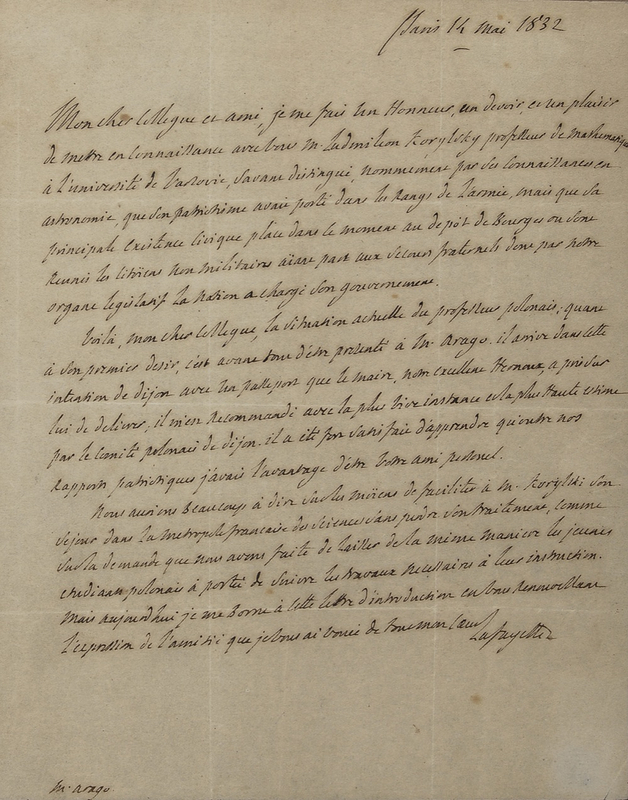 Paris 14 mai 1832
Mon cher Collegue et ami, je me fais un Honneur, un devoir, et un plaisir
de mettre en Connaissance avec vous Mr. Ludmilion Korylsky professeur de mathematiques
à l'université de Varsovie, Savant distingué, nommement par ses Connaissances en
astronomie, que son patriotisme avait porté dans les Rangs de l'armée, mais que sa
principale Existence Civique place dans le moment au depôt de Bourges ou sont
Reunis les Citoiens non militaires aïant part aux Secours fraternels dont par notre
organe legislatif la Nation a chargé son gouvernement.
Voilà, mon cher Collegue, la Situation actuelle du professeur polonais; quant
à son premier desir, c'est avant tout d'être presenté à Mr. Arago. il arrive dans cette
intention de dijon avec un passeport que le maire, notre excellent Hernoux, a pris sur
lui de delivrer; il m'est Recommandé avec la plus vive instance et la plus Haute estime
par le Comité polonais de dijon. il a été fort satisfait d'apprendre qu'outre nos
Rapports patriotiques j'avais l'avantage d'être votre ami personel.
Nous aurions Beaucoup à dire sur les moïens de faciliter à Mr. Korylski son
Sejour dans la metropole française des Sciences sans perdre son traitement, comme
sur la demande que nous avons faite de laisser de la même maniere les jeunes
etudians polonais à portée de suivre les travaux necessaires à leur instruction.
mais aujourdhui je me Borne à cette lettre d'introduction en vous Renouvellant
l'expression de l'amitié que je vous ai vouée de tout mon Coeur
Lafayette
Mr. arago